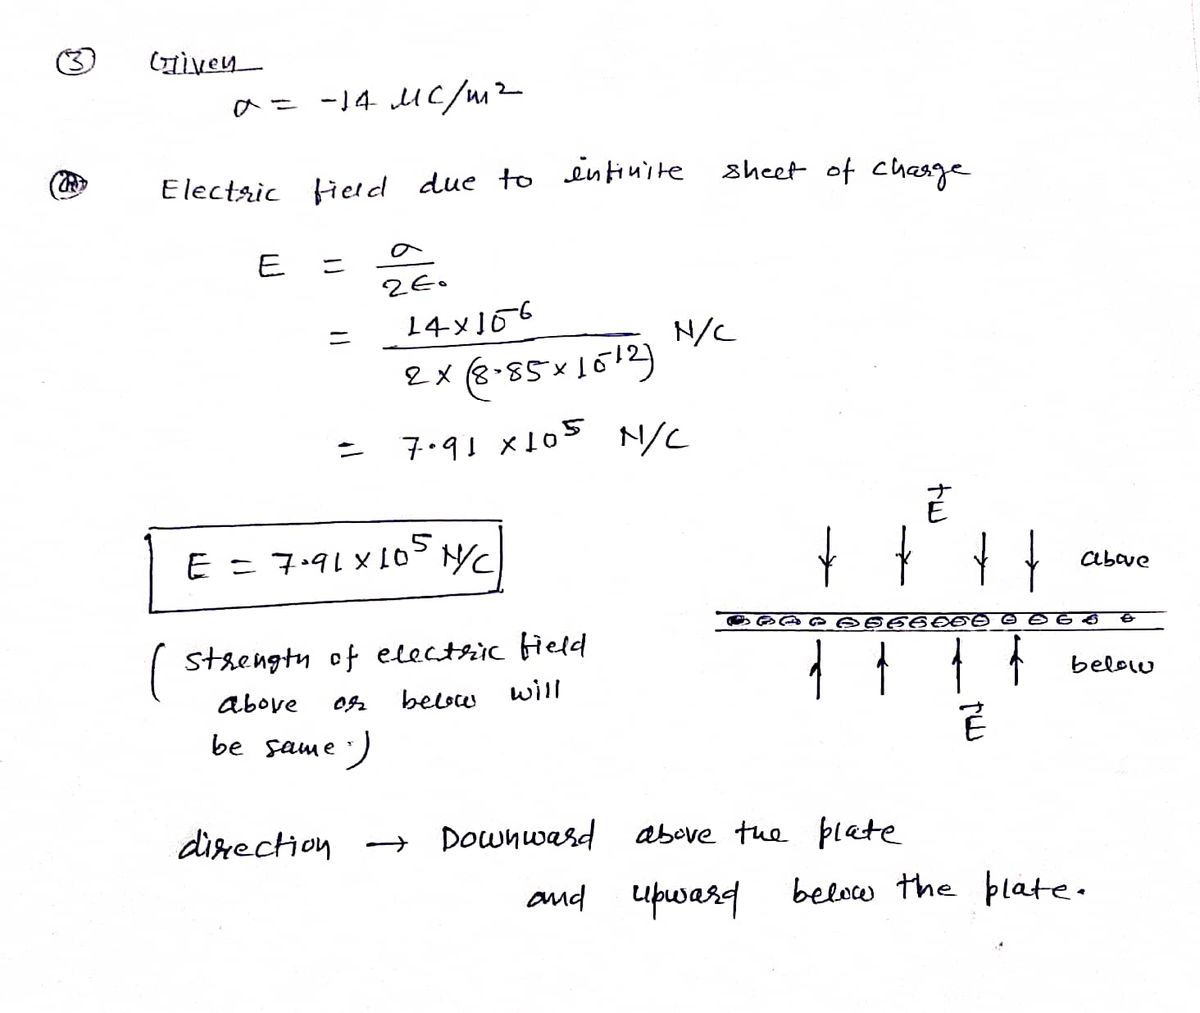 ③ Given
σ = -14 μC/m²
Electric field due to infinite sheet of charge
E = σ / 2ϵ₀
= 14×10⁻⁶ / 2×(8.85×10⁻¹²) N/C
= 7.91 ×10⁵ N/C
E = 7.91×10⁵ N/C
(strength of electric field
above or below will
be same.)
E⃗
above
⊖ ⊖ ⊖ ⊖ ⊖ ⊖ ⊖ ⊖ ⊖ ⊖ ⊖ ⊖ ⊖ ⊖ ⊖ ⊖
below
E⃗
direction → Downward above the plate
and upward below the plate.